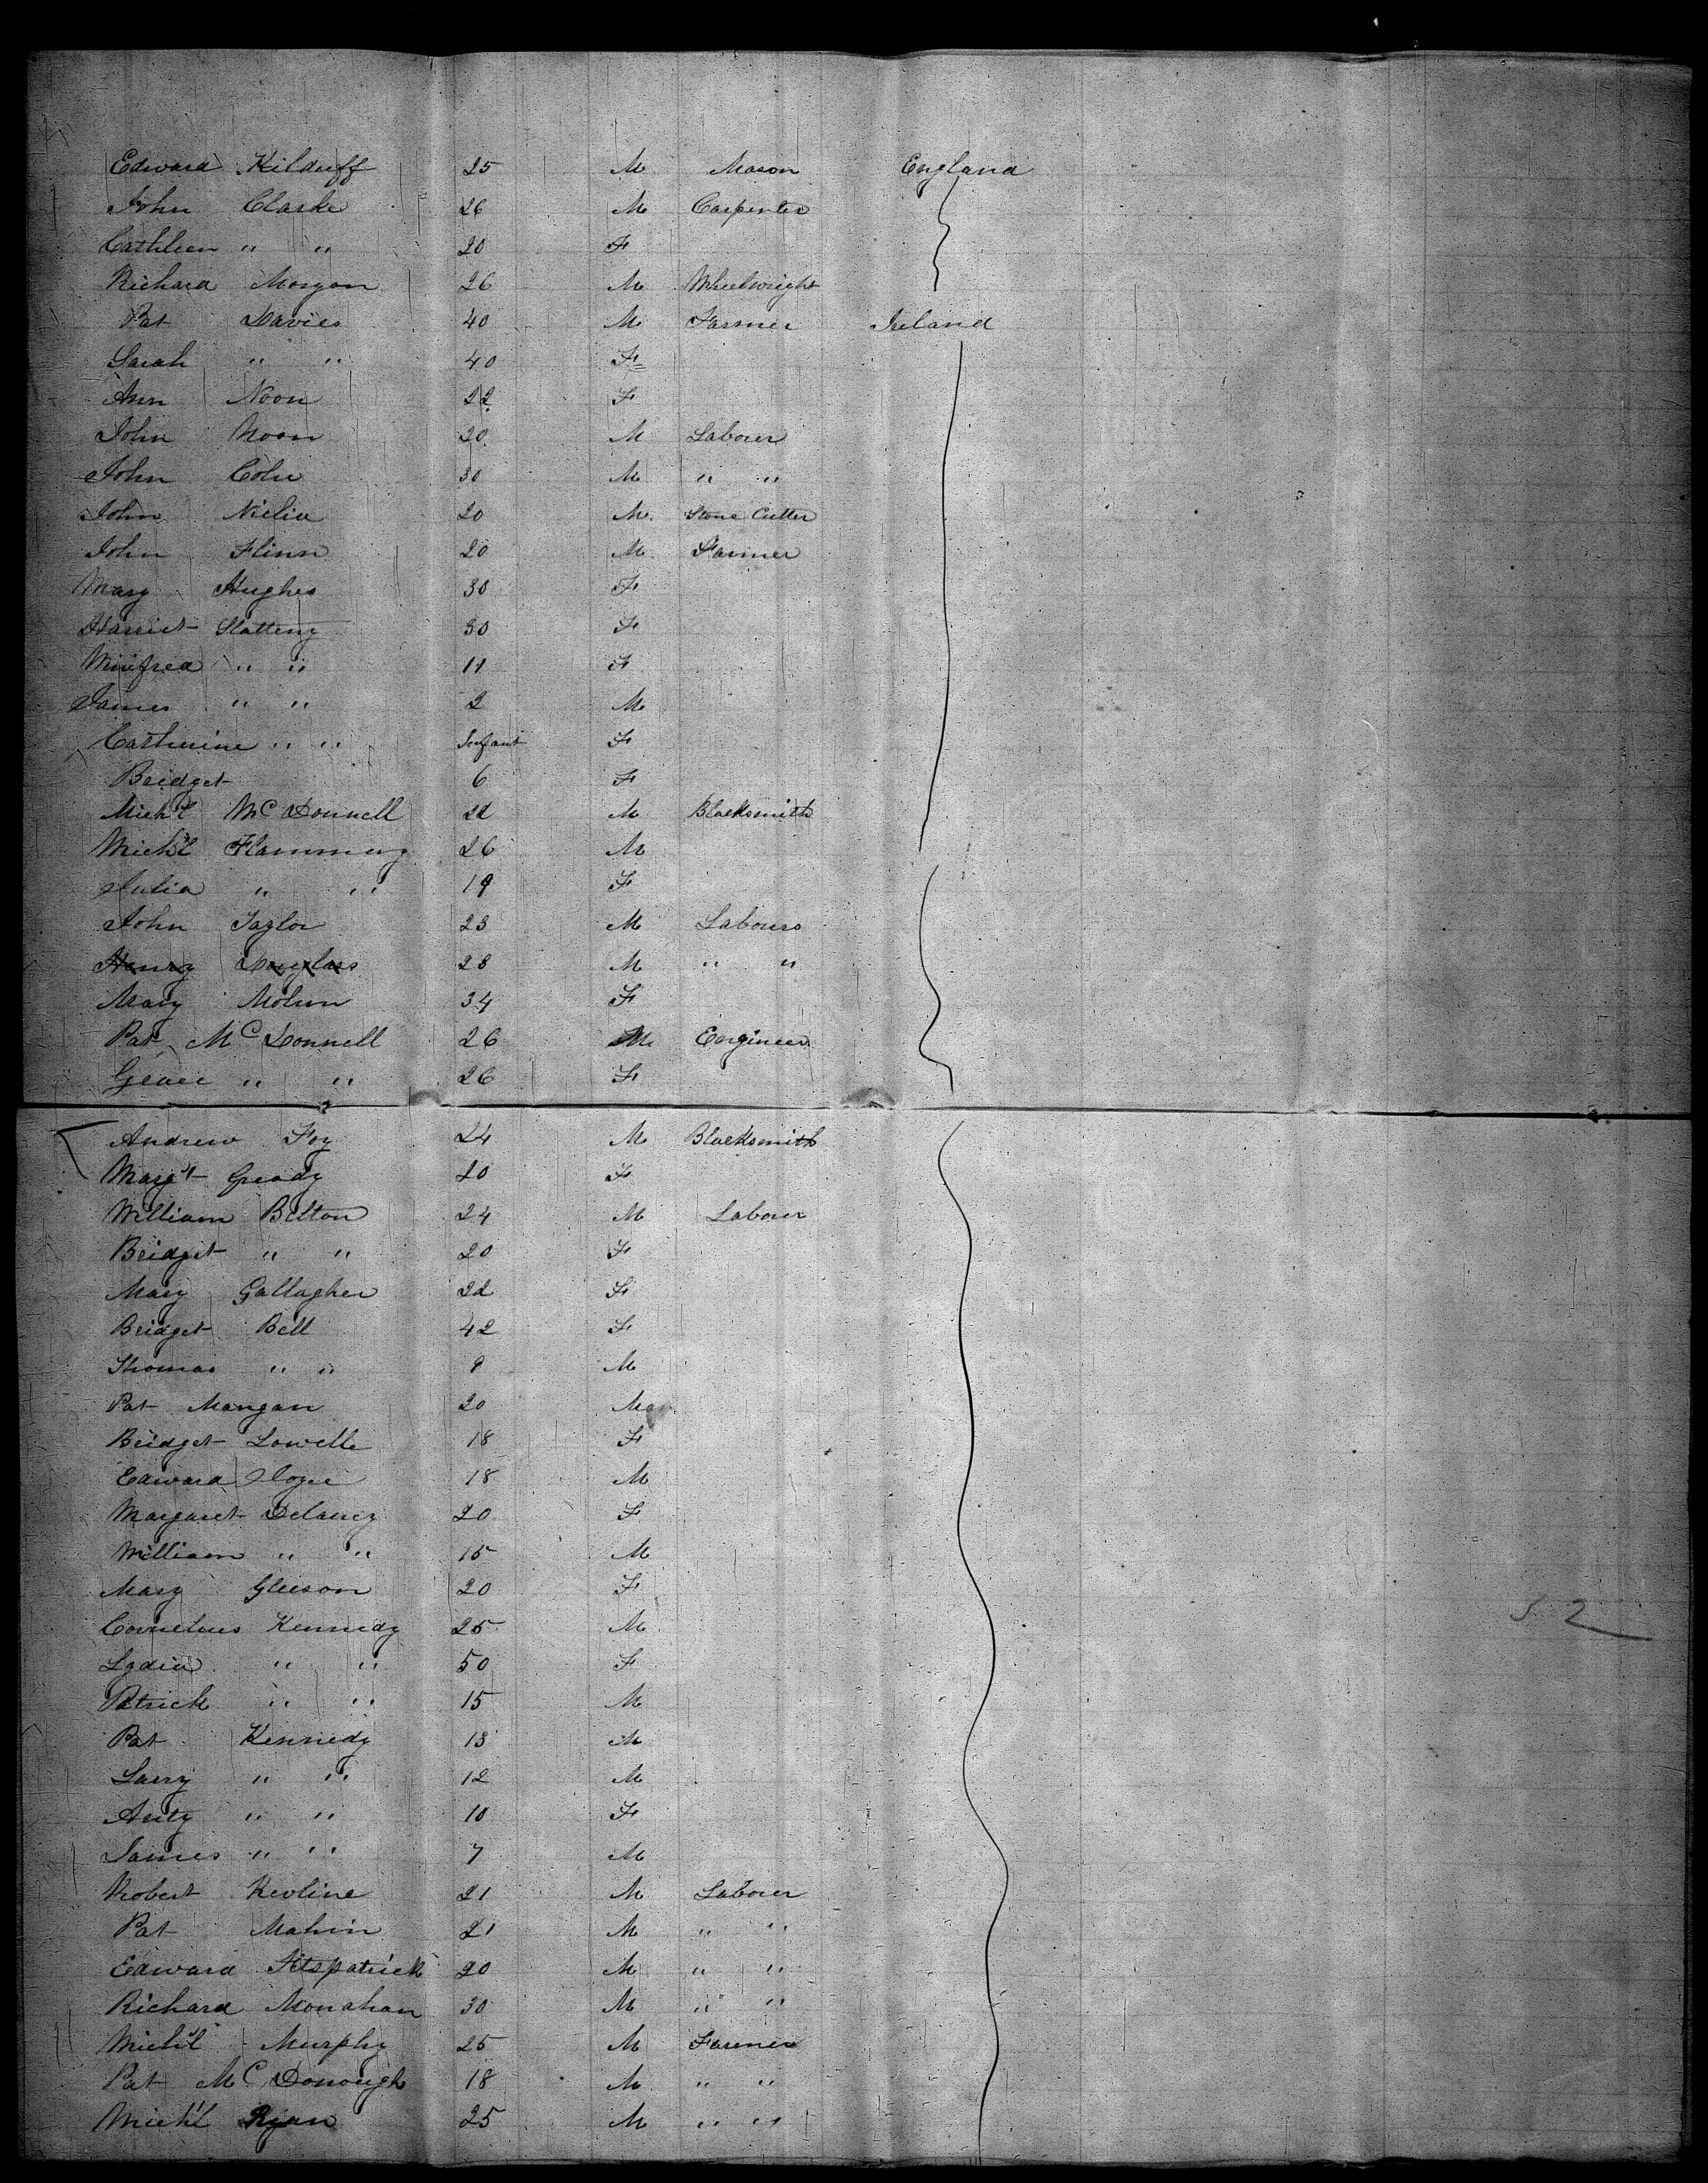 Edward Kilduff 25 M Mason England
John Clarke 26 M Carpenter
Cathleen " " 20 F
Richard Morgan 26 M Wheelwright
Pat Davies 40 M Farmer Ireland
Sarah " " 40 F
Ann Noon 22 F
John Noon 20 M Laborer
John 30 M " "
John 20 M Stone Cutter
John Flinn 20 M Farmer
Mary Hughes 30 F
Harriet Slattery 30 F
Winifred " " 11 F
James " " 2 M
Catherine " " Infant F
Bridget 6 F
Mich'l McDonnell 22 M Blacksmith
Mich'l Flammery 26 M
Julia " " 19 F
John Taylor 23 M Labours
Henry Douglass 28 M " "
Mary 34 F
Pat McDonnell 26 M Engineer
Grace " " 26 F
Andrew Foy 24 M Blacksmith
Marg't Gready 20 F
William Belton 24 M Laborer
Bridget " " 20 F
Mary Gallagher 22 F
Bridget Bell 42 F
Thomas " " 9 M
Pat Mangan 20 M
Bridget Lowelle 18 F
Edward 18 M
Margaret Delaney 20 F
William " " 15 M
Mary Gleeson 20 F
Cornelius Kennedy 25 M
Lydia " " 50 F
Patrick " " 15 M
Pat Kennedy 13 M
Larry " " 12 M
Anty " " 10 F
James " " 7 M
Robert 21 M Laborer
Pat Mahin 21 M " "
Edward Fitspatrick 20 M " "
Richard Monahan 30 M " "
Mich'l Murphy 25 M Farmer
Pat McDonough 18 M " "
Mich'l Ryan 25 M " "
52